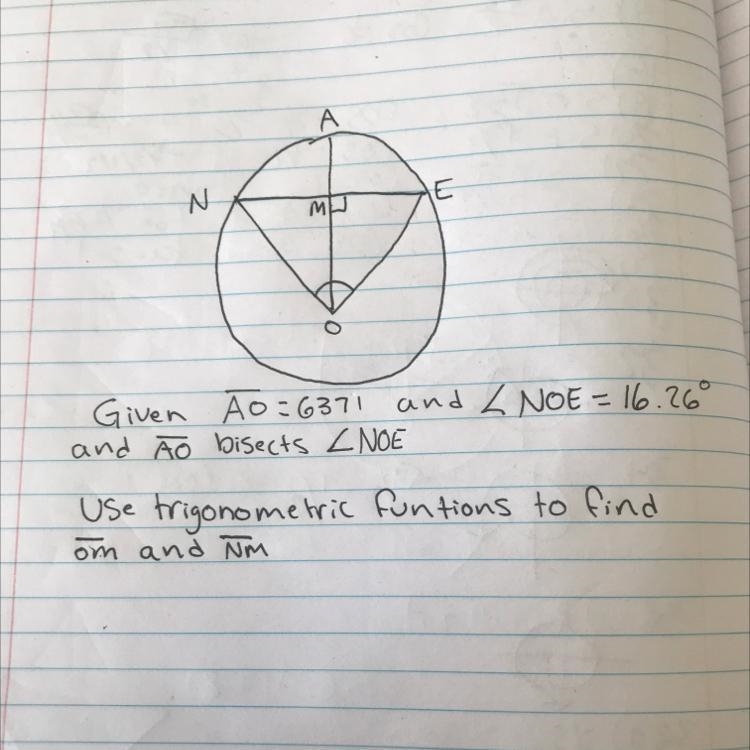 A
N
E
M
O
Given A̅O̅ = 6371 and ∠NOE = 16.26°
and A̅O̅ bisects ∠NOE
Use trigonometric funtions to find
o̅m̅ and N̅M̅